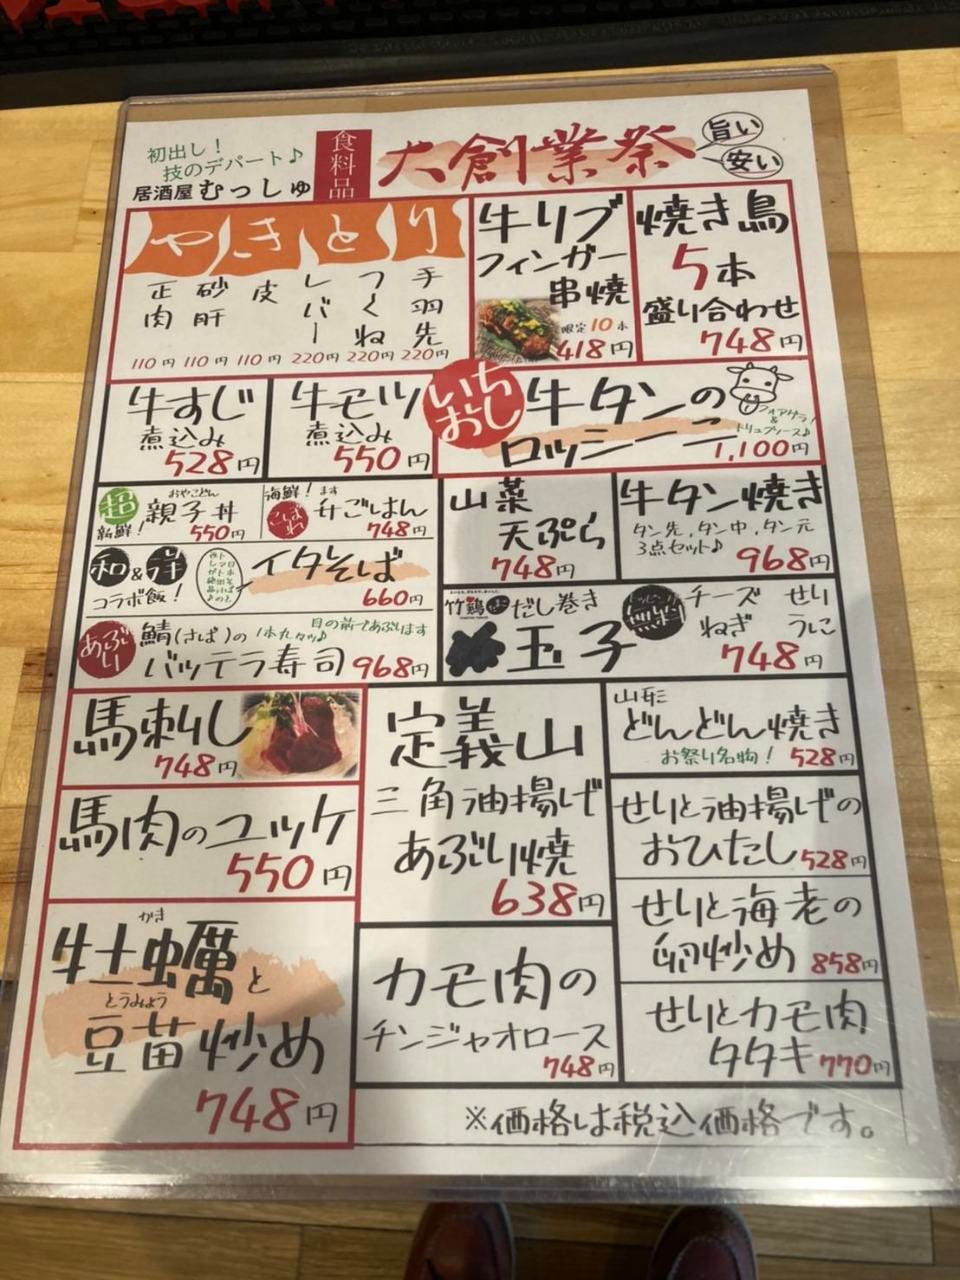 初出し！
技のデパート♪
居酒屋 むっしゅ
食料品
大創業祭
旨い
安い
やきとり
正肉 110円
砂肝 110円
皮 110円
レバー 220円
つくね 220円
手羽先 220円
牛リブ
フィンガー
串焼
限定10本
418円
焼き鳥
5本
盛り合わせ
748円
牛すじ
煮込み
528円
牛モツ
煮込み
550円
いち
おし
牛タンの
ロッシーニ
フォアグラ
&
トリュフソース♪
1,100円
超
新鮮！
おやこどん
親子丼
550円
海鮮！
こぼ
れ
ます
升ごはん
748円
山菜
天ぷら
748円
牛タン焼き
タン先、タン中、タン元
3点セット♪
968円
和&洋
コラボ飯！
イタそば
660円
竹鶏
だし巻き
玉子
チーズ せり
ねぎ うに
748円
あぶり
鯖(さば)の
1本丸々ッ♪
目の前であぶります
バッテラ寿司 968円
馬刺し
748円
定義山
三角油揚げ
あぶり焼
638円
山形
どんどん焼き
お祭り名物！ 528円
馬肉のユッケ
550円
せりと油揚げの
おひたし 528円
せりと海老の
卵炒め 858円
かき
牡蠣と
とうみょう
豆苗炒め
748円
カモ肉の
チンジャオロース
748円
せりとカモ肉
タタキ 770円
※価格は税込価格です。